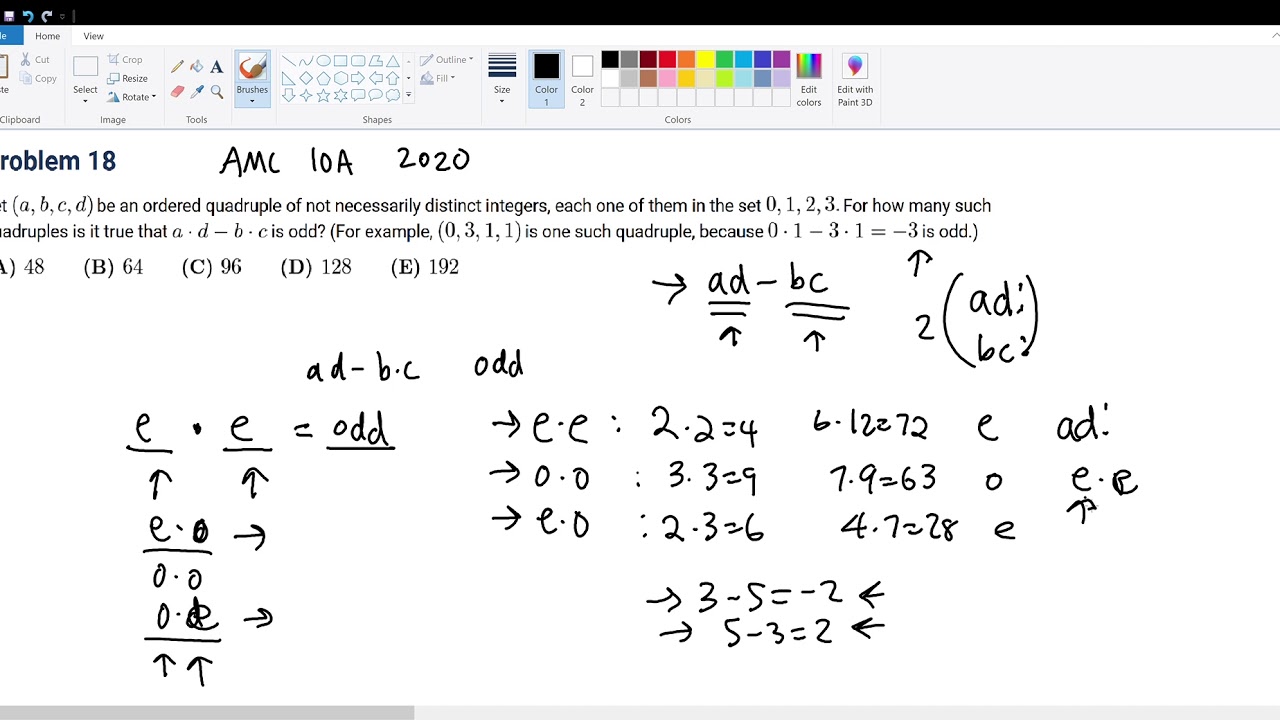 Home View
Cut
Copy
Clipboard
Select
Crop
Resize
Rotate
Image
Tools
Brushes
Shapes
Outline
Fill
Size
Color 1
Color 2
Edit colors
Edit with Paint 3D
Colors
roblem 18 AMC 10A 2020
t (a, b, c, d) be an ordered quadruple of not necessarily distinct integers, each one of them in the set 0, 1, 2, 3. For how many such
uadruples is it true that a · d − b · c is odd? (For example, (0, 3, 1, 1) is one such quadruple, because 0 · 1 − 3 · 1 = −3 is odd.)
A) 48 (B) 64 (C) 96 (D) 128 (E) 192
→ ad − bc ↑
↑ ↑ 2 (ad:
bc:)
ad − b·c odd
e · e = odd → e·e : 2·2=4 6·12=72 e ad:
↑ ↑ → o·o : 3·3=9 7·9=63 o e·e
e·o → → e·o : 2·3=6 4·7=28 e ↑
o·o
o·e → → 3−5=−2 ←
↑ ↑ → 5−3=2 ←